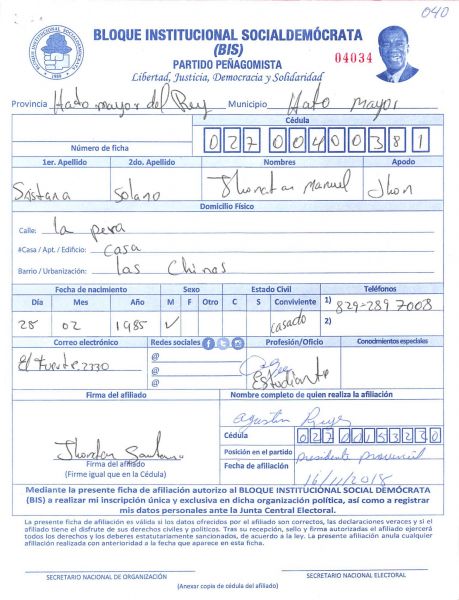 040
BLOQUE INSTITUCIONAL SOCIALDEMÓCRATA
(BIS)
PARTIDO PEÑAGOMISTA
04034
Libertad, Justicia, Democracia y Solidaridad
BLOQUE INSTITUCIONAL SOCIALDEMOCRATA
Provincia Hato mayor del Rey Municipio Hato mayor
Cédula
Número de ficha 027 0040038 1
1er. Apellido 2do. Apellido Nombres Apodo
Santana Solano Jhonatan Manuel Jhon
Domicilio Físico
Calle: la pera
#Casa / Apt. / Edificio: Casa
Barrio / Urbanización: las Chinas
Fecha de nacimiento Sexo Estado Civil Teléfonos
Día Mes Año M F Otro C S Conviviente 1) 829-289 7008
28 02 1985 ✓ casado 2)
Correo electrónico Redes sociales Profesión/Oficio Conocimientos especiales
El fuerte2230 @
@ Estudiante
@
Firma del afiliado Nombre completo de quien realiza la afiliación
Agustin Reyes
Cédula 027 0015323 0
Jhonatan Santana Posición en el partido presidente provincial
Firma del afiliado Fecha de afiliación 16/11/2018
(Firme igual que en la Cédula)
Mediante la presente ficha de afiliación autorizo al BLOQUE INSTITUCIONAL SOCIAL DEMÓCRATA
(BIS) a realizar mi inscripción única y exclusiva en dicha organización política, así como a registrar
mis datos personales ante la Junta Central Electoral.
La presente ficha de afiliación es válida si los datos ofrecidos por el afiliado son correctos, las declaraciones veraces y si el
afiliado tiene el disfrute de sus derechos civiles y políticos. Tras su recepción, sello y firma autorizadas el afiliado ejercerá
todos los derechos y los deberes estatutariamente sancionados, de acuerdo a la ley. La presente afiliación anula cualquier
afiliación realizada con anterioridad a la fecha que aparece en esta ficha.
SECRETARIO NACIONAL DE ORGANIZACIÓN SECRETARIO NACIONAL ELECTORAL
(Anexar copia de cédula del afiliado)